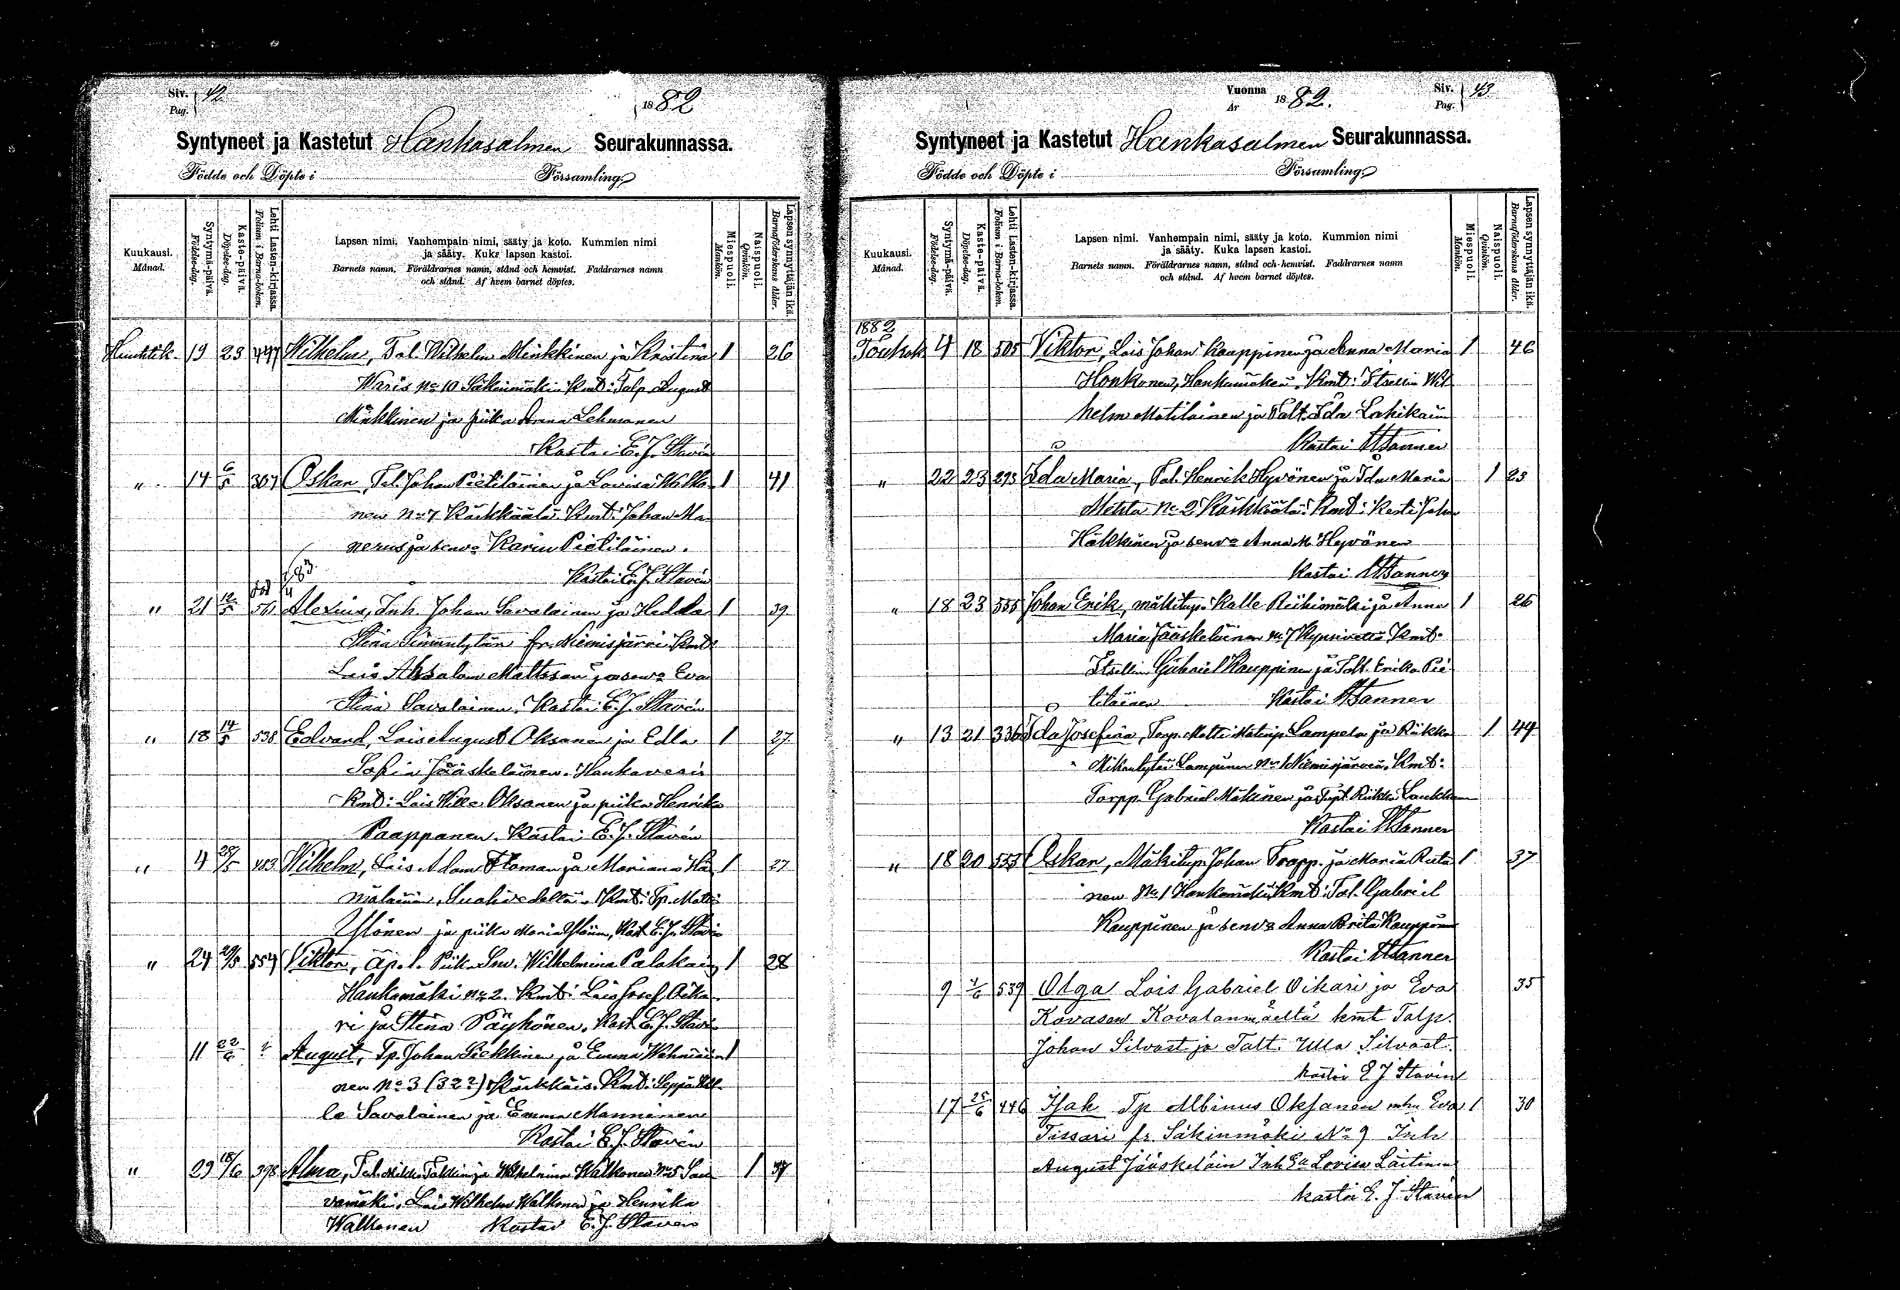 Siv. 42
Pag.
1882
Syntyneet ja Kastetut Hankasalmen Seurakunnassa.
Födde och Döpte i Församling
Kuukausi. Månad.
Syntymä-päivä. Födelse-dag.
Kaste-päivä. Döpelse-dag.
Lehti Lasten-kirjassa. Folium i Barna-boken.
Lapsen nimi. Vanhempain nimi, sääty ja koto. Kummien nimi
ja sääty. Kuka lapsen kastoi.
Barnets namn. Föräldrarnes namn, stånd och hemvist. Faddrarnes namn
och stånd. Af hvem barnet döptes.
Miespuoli. Mankön.
Naispuoli. Qvinkön.
Lapsen synnyttäjän ikä. Barnaföderskans ålder.
Huhtik. 19 23 447 Wilhelm, Tal. Wilhelm Minkkinen ja Kristina 1 26
Waris No 10 Säkinmäki. Kmt: Talp. August
Minkkinen ja piika Anna Lehmonen
Kastoi E. J. Stavén
" 14 6/5 307 Oskar, Tal. Johan Pietiläinen ja Lovisa Walko- 1 41
nen No 7 Kärkkäälä. Kmt: Johan Ma-
nerus ja senva Karin Pietiläinen.
Kastoi E. J. Stavén
" 21 12/5 561 Alexius, Inh. Johan Savolainen ja Hedda 1 39
Stina Simuntytär fr. Niemisjärvi. Kmt:
Lois Absalom Mattsson ja senva Eva
Stina Savolainen. Kastoi E. J. Stavén
" 18 14/5 538 Edvard, Lois August Oksanen ja Edla 1 27
Sofia Jääskeläinen. Hankavesi
Kmt: Lois Wille Oksanen ja piika Henrika
Paappanen. Kastoi E. J. Stavén
" 4 28/5 453 Wilhelm, Lois Adam Homan ja Mariana Hä- 1 27
mäläinen, Kmt: Tp. Matti
Ylönen ja piika Maria Ylönen, Kast. E. J. Stavén
" 24 29/5 554 Viktor, Äp. l. Piika Wilhelmina Palokain 1 28
Hankamäki No 2. Kmt: Lois Josef Oika-
ri ja Stina Päykönen. Kast. E. J. Stavén
11 22/6 ? August, Tp. Johan Liekkinen ja Emma 1
nen No 3 (32?) Kärkkäis. Kmt: Seppä Kal-
le Savolainen ja Emma Manninen
Kastoi E. J. Stavén
" 29 18/6 398 Alma, Tal. ja Wilhelmina Walkonen No 5 Sau- 1 37
vamäki. Lois Wilhelm Walkonen ja Henrika
Walkonen Kastoi E. J. Stavén
Vuonna År 1882.
Siv. 43
Pag.
Syntyneet ja Kastetut Hankasalmen Seurakunnassa.
Födde och Döpte i Församling
Kuukausi. Månad.
Syntymä-päivä. Födelse-dag.
Kaste-päivä. Döpelse-dag.
Lehti Lasten-kirjassa. Folium i Barna-boken.
Lapsen nimi. Vanhempain nimi, sääty ja koto. Kummien nimi
ja sääty. Kuka lapsen kastoi.
Barnets namn. Föräldrarnes namn, stånd och hemvist. Faddrarnes namn
och stånd. Af hvem barnet döptes.
Miespuoli. Mankön.
Naispuoli. Qvinkön.
Lapsen synnyttäjän ikä. Barnaföderskans ålder.
1882
Toukok. 4 18 505 Viktor, Lois Johan Kauppinen ja Anna Maria 1 46
Honkonen, Hankamäken. Kmt: Itsellin Wil-
helm Matilainen ja Talt. Ida Lahikain
Kastoi Wanner
" 22 23 293 Ida Maria, Tal. Henrik Hyvönen ja Ida Maria 1 23
Mehto No 2 Kärkkäälä. Kmt: Kesti Johan
Häkkinen ja senva Anna M. Hyvönen
Kastoi Wanner
" 18 23 555 Johan Erik, mäkitup. Kalle Riihimäki ja Anna 1 26
Maria Jääskeläinen No 7 Kypsivettä Kmt:
Itsellin Gabriel Kauppinen ja Talt. Erika Pie-
tiläinen Kastoi Wanner
" 13 21 336 Ida Josefina, Torp. Matti Matinp. Lampela ja Riikka 1 44
Mikontytär Lampinen No 1 Niemisjärven. Kmt:
Torpp. Gabriel Mäkinen ja Riikka
Kastoi Wanner
" 18 20 555 Oskar, Mäkitup. Johan Tropp. ja Maria Ruta- 1 37
nen No 1 Hankamäki. Kmt: Tal. Gabriel
Kauppinen ja senva Anna Brita Kauppinen
Kastoi Wanner
9 1/6 539 Olga Lois Gabriel Oikari ja Eva 35
Kovasen Kovalanmäeltä kmt Talp.
Johan Silvast ja Talt. Ulla Silvast.
kastoi E J Stavén
17 25/6 446 Isak Tp Albinus Oksanen Eva 1 30
Tissari fr. Säkinmäki No 9 Inh
August Jääskeläin Inh Ea Lovisa Laitinen
kastoi E. J Stavén